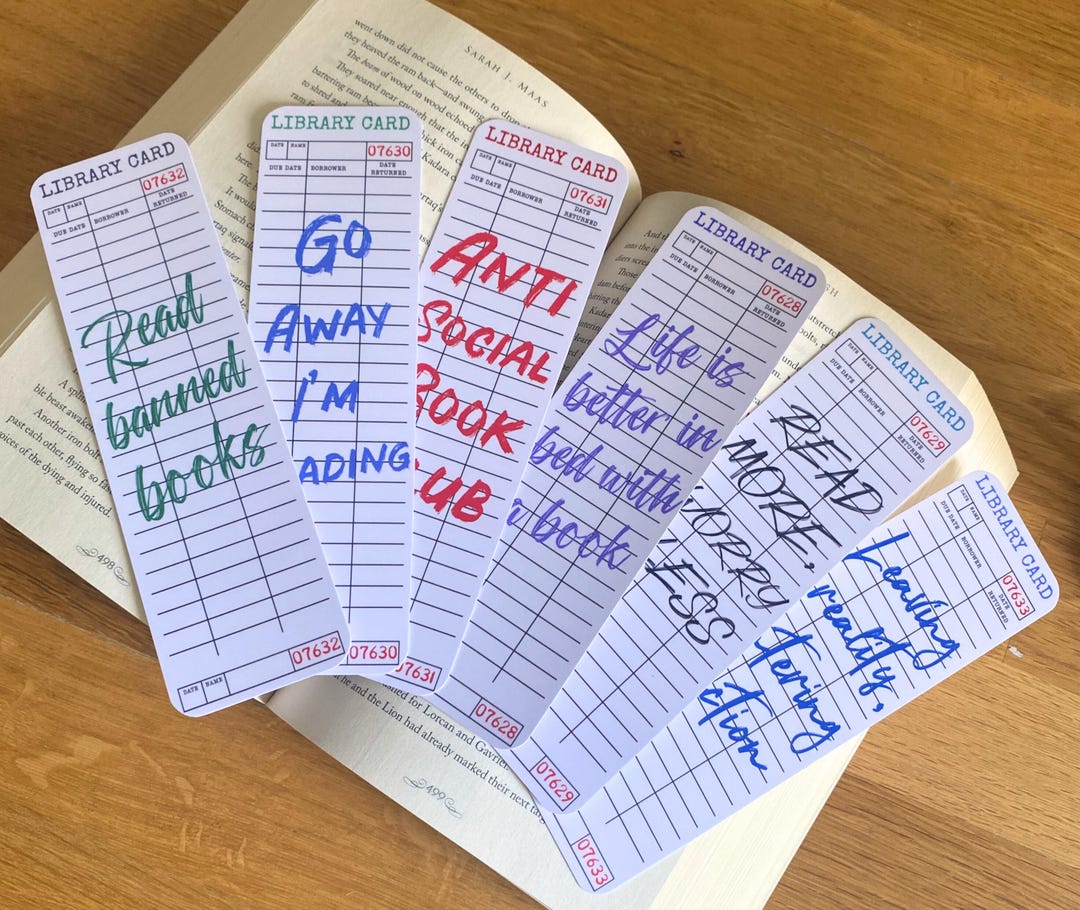 SARAH J. MAAS
went down did not cause the others to
they heaved the ram back—and swung
The boom of wood on wood echoed
battering ram
They soared near enough that the
to shred and
498
LIBRARY CARD
07632
DATE NAME
DUE DATE BORROWER DATE RETURNED
Read
banned
books
07632
DATE NAME
LIBRARY CARD
07630
DATE NAME
DUE DATE BORROWER DATE RETURNED
GO
AWAY
I'M
ADING
07630
LIBRARY CARD
07631
DATE NAME
DUE DATE BORROWER DATE RETURNED
ANTI
SOCIAL
BOOK
LUB
07631
LIBRARY CARD
07628
DATE NAME
DUE DATE BORROWER DATE RETURNED
Life is
better in
bed with
a book
07628
LIBRARY CARD
07629
DATE NAME
DUE DATE BORROWER DATE RETURNED
READ
MORE,
WORRY
LESS
07629
LIBRARY CARD
07633
DATE NAME
DUE DATE BORROWER DATE RETURNED
Leaving
reality,
tering
ction
07633
A
ble beast
Another iron
past each other, flying so
oices of the dying and injured.
for Lorcan and
he and the Lion had already marked their next
499